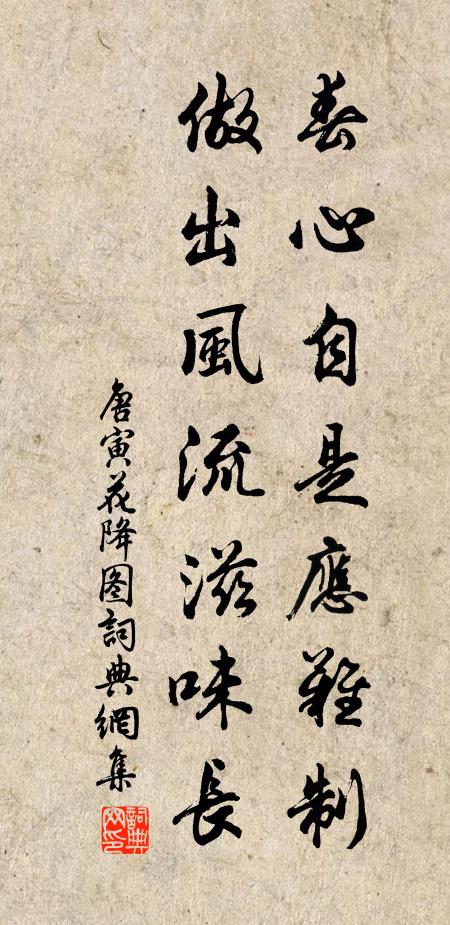 春心自是應難制
做出風流滋味長
唐寅花降图詞典網集
詞典网印